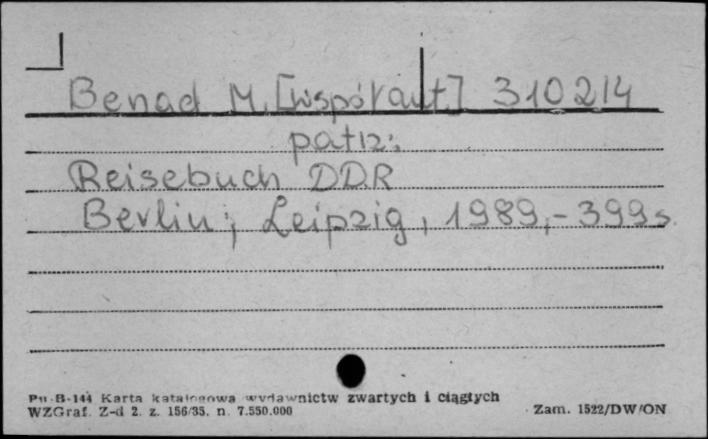 Benad M. [współaut.] 310214
patrz:
Reisebuch DDR
Berlin; Leipzig, 1989,- 399 s.
Pu-B-144 Karta katalogowa wydawnictw zwartych i ciągłych
WZGraf. Z-d 2. z. 156/85. n. 7.550.000 Zam. 1522/DW/ON